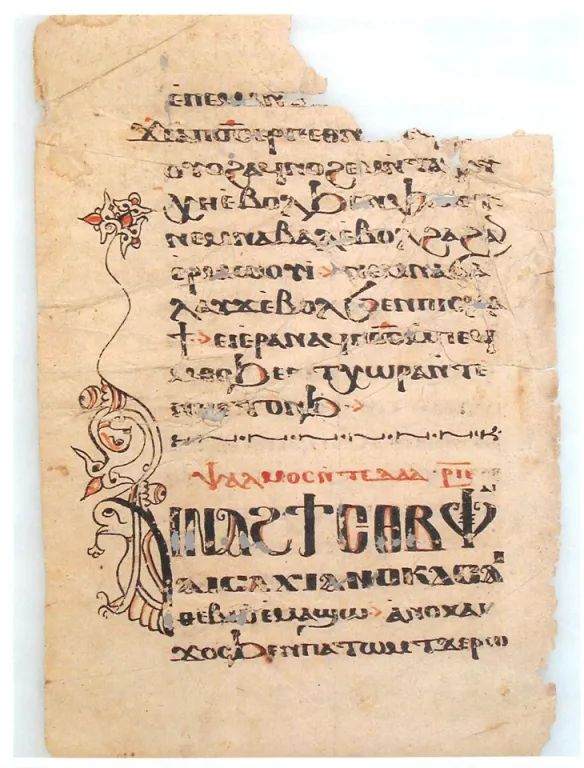 ⲉⲡⲉⲙⲁⲛ
ϫⲉⲁⲡϭⲥⲉⲣⲡⲉⲑⲛ
ⲟⲩⲟϩⲁϥⲛⲟϩⲉⲙⲛⲧⲁⲯⲩ
ⲭⲏⲉⲃⲟⲗϧⲉⲛⲫⲙⲟⲩ
ⲛⲉⲙⲛⲁⲃⲁⲗⲉⲃⲟⲗϩⲁϩⲁⲛ
ⲉⲣⲙⲱⲟⲩⲓ ⲛⲉⲙⲛⲁϭⲁ
ⲗⲁⲩϫⲉⲃⲟⲗϧⲉⲛⲡⲓⲥⲗⲁ
ϯ ⲉⲓⲉⲣⲁⲛⲁϥⲙⲡϭⲥⲙⲡⲉϥ
ⲙⲑⲟϧⲉⲛ ⲧⲭⲱⲣⲁⲛⲧⲉ
ⲛⲏⲉⲧⲟⲛϧ
ⲯⲁⲗⲙⲟⲥⲛⲧⲉⲇⲁⲇ ⲣⲓⲉ
ⲁⲓⲛⲁϩϯⲉⲑⲃⲉⲫ
ⲁⲓⲁⲓⲥⲁϫⲓⲁⲛⲟⲕⲇⲉⲁⲓ
ⲑⲉⲃⲓⲟⲉⲙⲁϣⲱ ⲁⲛⲟⲕⲁⲓ
ϫⲟⲥϧⲉⲛⲡⲁⲧⲱⲙⲧϫⲉⲣⲱ